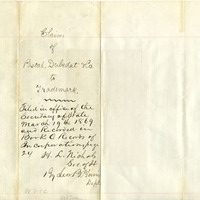 Claim
of
& Co
to
Trademark
Filed in office of the
Secretary of State
March 19th 1869
and Recorded in
Book C Records of
Incorporations page
24
H. L. Nichols
Sec of St
By Lew B.
Dept